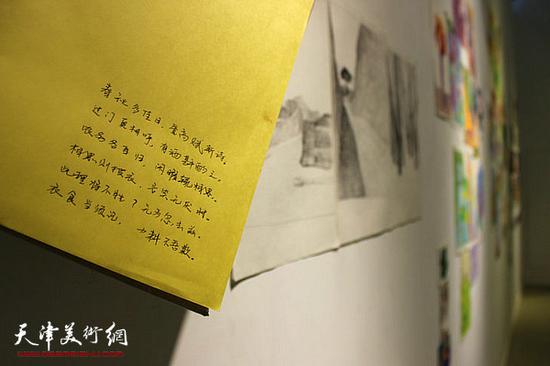 春秋多佳日,登高赋新诗。
过门更相呼,有酒斟酌之。
农务各自归,闲暇辄相思。
相思则披衣,言笑无厌时。
此理将不胜?无为忽去兹。
衣食当须纪,力耕不吾欺。
天津美術網